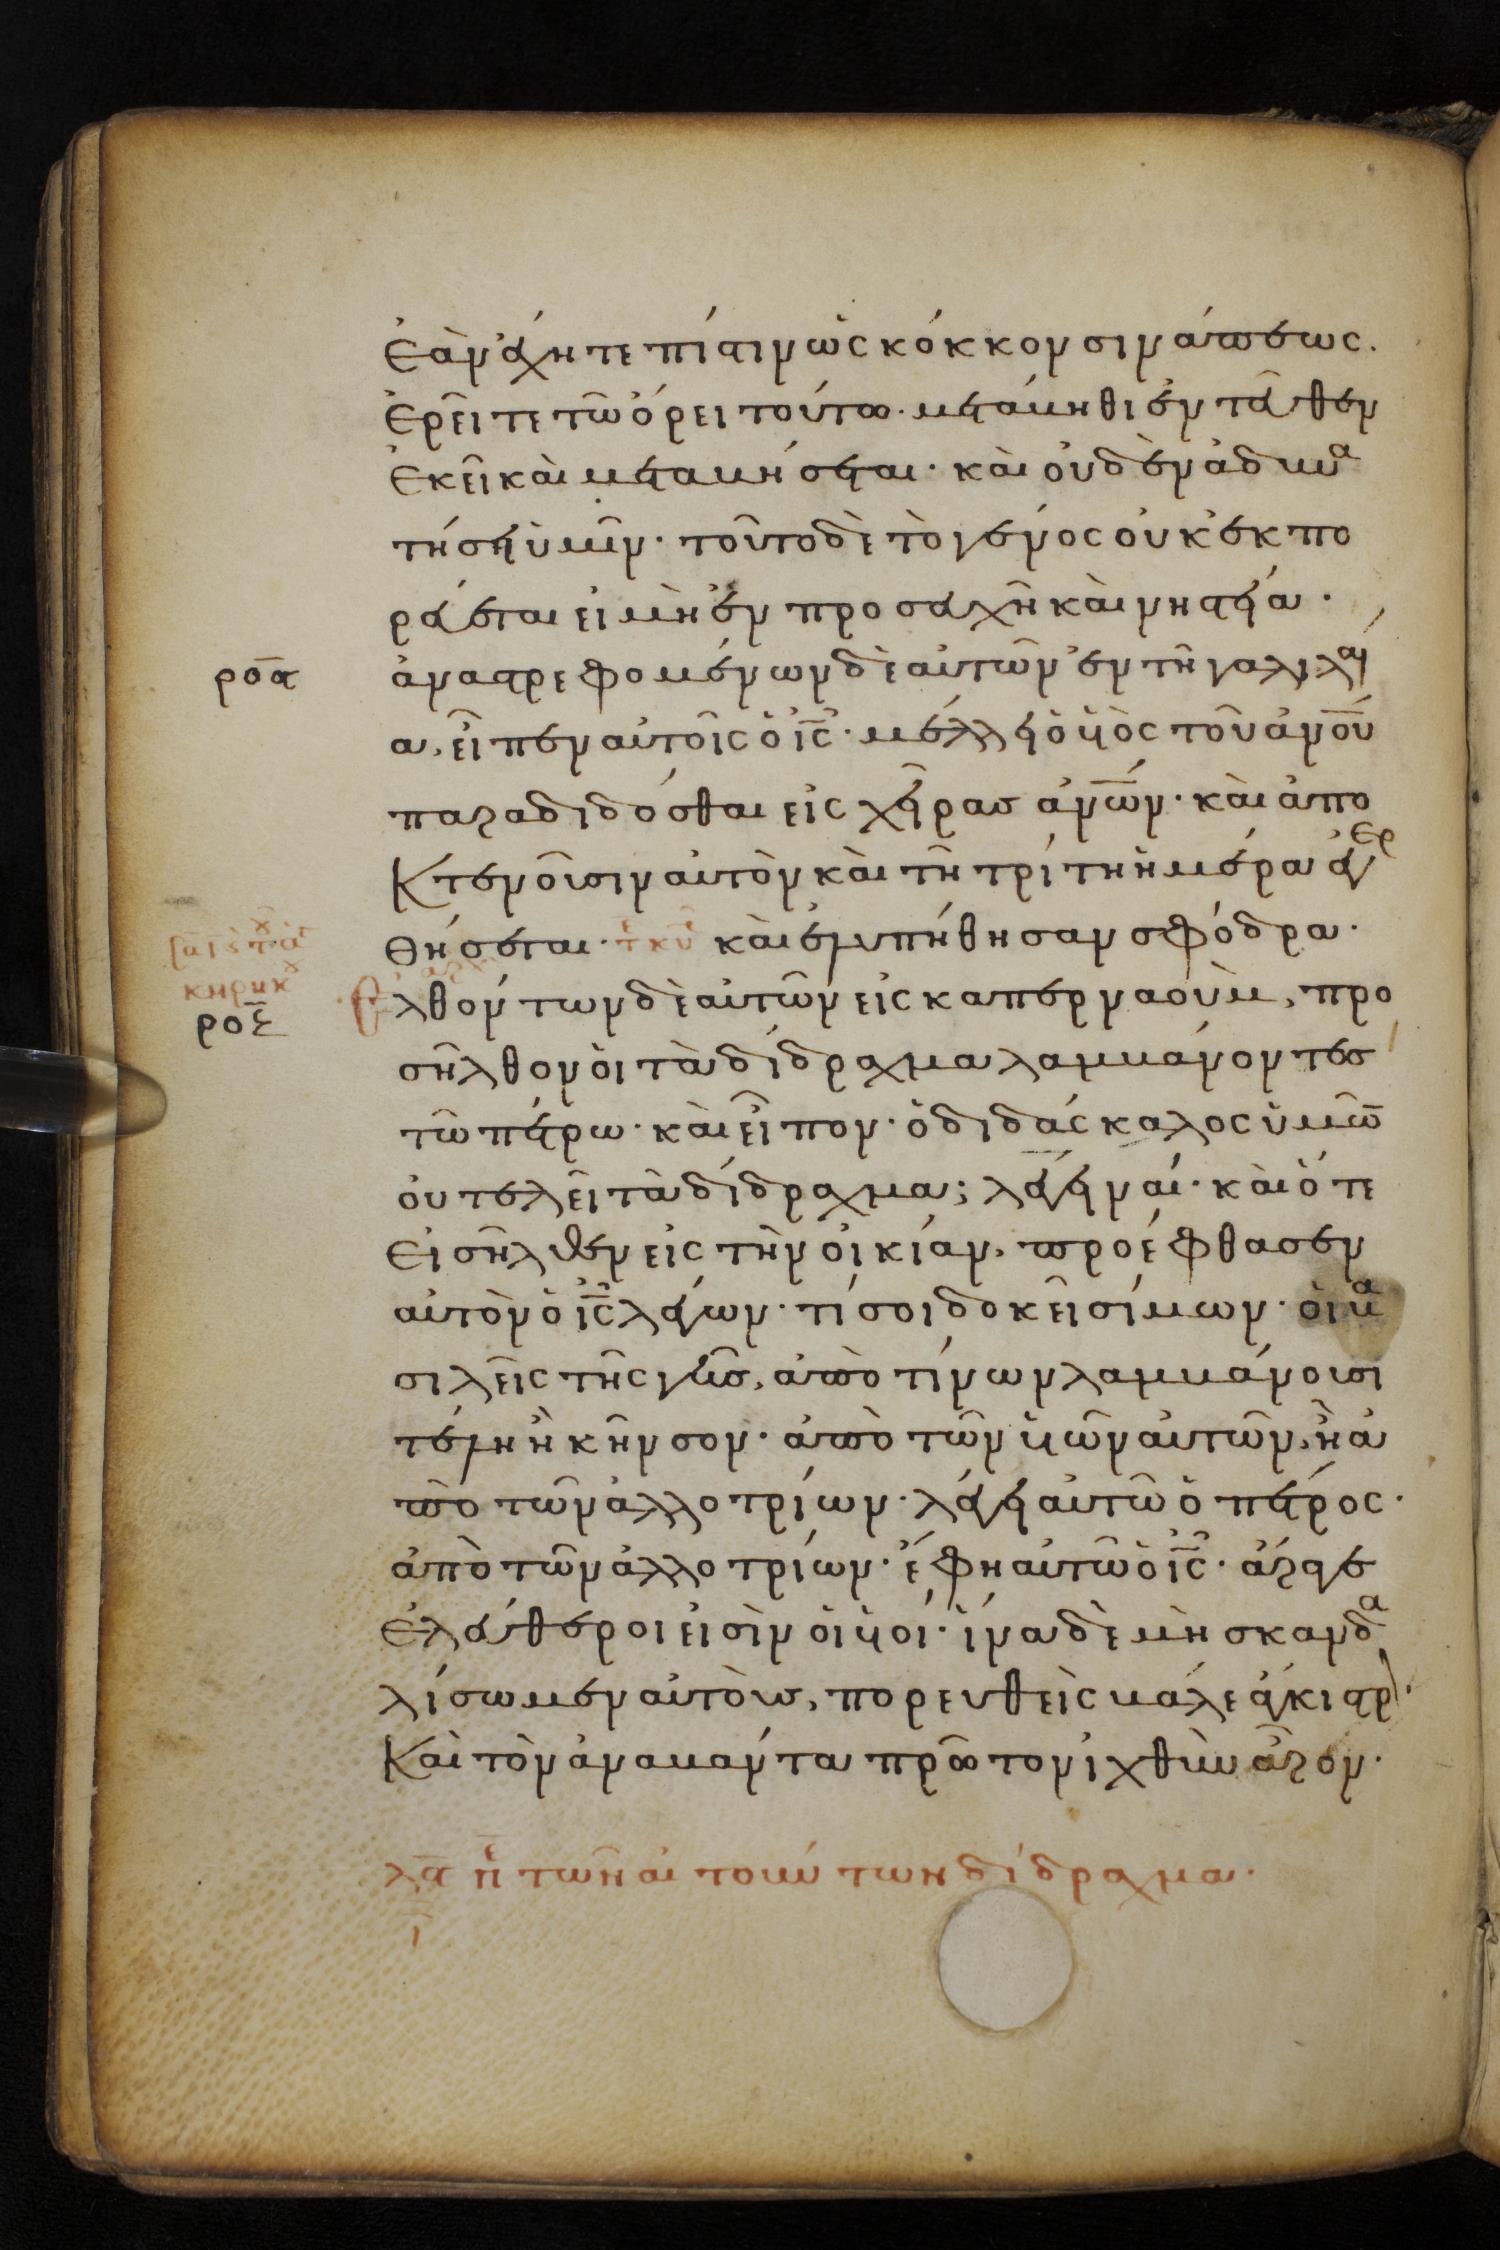 ἐὰν ἔχητε πίστιν ὡς κόκκον σινάπεως.
ἐρεῖτε τῶ ὄρει τούτω· μετάβηθι ἐντεῦθεν
ἐκεῖ καὶ μεταβήσεται· καὶ οὐδὲν ἀδυνα
τήσει ὑμῖν· τοῦτο δὲ τὸ γένος οὐκ ἐκπο
ρεύεται εἰ μὴ ἐν προσευχῆ καὶ νηστεία·
ροα ἀναστρεφομένων δὲ αὐτῶν ἐν τῆ γαλιλαί
α, εἶπεν αὐτοῖς ὁ ις· μέλλει ὁ υἱὸς τοῦ ανου
παραδίδοσθαι εἰς χεῖρας ανων· καὶ ἀπο
κτενοῦσιν αὐτὸν καὶ τῆ τρίτη ἡμέρα ἐγερ
θήσεται· καὶ ἐλυπήθησαν σφόδρα·
ροβ ἐλθόντων δὲ αὐτῶν εἰς καπερναοὺμ, προ
σῆλθον οἱ τὰ δίδραχμα λαμβάνοντες
τῶ πέτρω· καὶ εἶπον· ὁ διδάσκαλος ὑμῶ
οὐ τελεῖ τὰ δίδραχμα; λέγει ναί· καὶ ὅτε
εἰσῆλθεν εἰς τὴν οἰκίαν, προέφθασεν
αὐτὸν ὁ ις λέγων· τί σοι δοκεῖ σίμων· οἱ βα
σιλεῖς τῆς γῆς, ἀπὸ τίνων λαμβάνουσι
τέλη ἢ κῆνσον· ἀπὸ τῶν υἱῶν αὐτῶν, ἢ ἀ
πὸ τῶν ἀλλοτρίων· λέγει αὐτῶ ὁ πέτρος·
ἀπὸ τῶν ἀλλοτρίων· ἔφη αὐτῶ ὁ ις· ἄραγε
ἐλεύθεροι εἰσὶν οἱ υἱοί· ἵνα δὲ μὴ σκανδα
λίσωμεν αὐτοὺς, πορευθεὶς βάλε ἄγκιστρ·
καὶ τὸν ἀναβάντα πρῶτον ἰχθὺν ἆρον·
λα π τῶν αἰτούντων δίδραχμα·